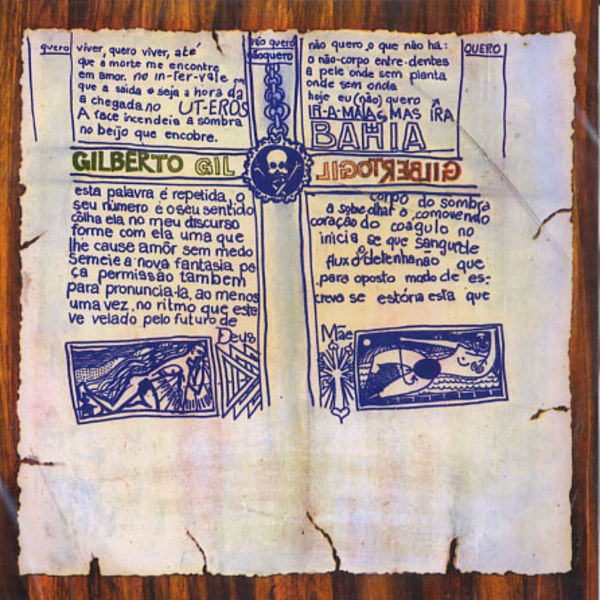 quero
viver, quero viver, até
que a morte me encontre
em amor. no in-ter-vale
que a saida e seja a hora da
a chegada no UT-EROS
A face incendeia a sombra
no beijo que encobre.
não quero
nãoquero
não quero o que não há:
o não-corpo entre-dentes
a pele onde sem planta
onde sem onda
hoje eu (não) quero
IR-A-MAIAS MAS IRA
BAHIA
QUERO
GILBERTO GIL
GILBERTO GIL
esta palavra é repetida, o
seu número é o seu sentido
côlha ela no meu discurso
forme com ela uma que
lhe cause amôr sem medo
Semeie a nova fantasia pe
ça permissão também
para pronuncia-la, ao menos
uma vez, no ritmo que este
ve velado pelo futuro de
Deus
corpo do sombra
a sobe olhar o comovendo
coração do coagulo no
inicia se que sangue de
fluxo detenha não que
para oposto modo de es-
creva se estória esta que
Mãe